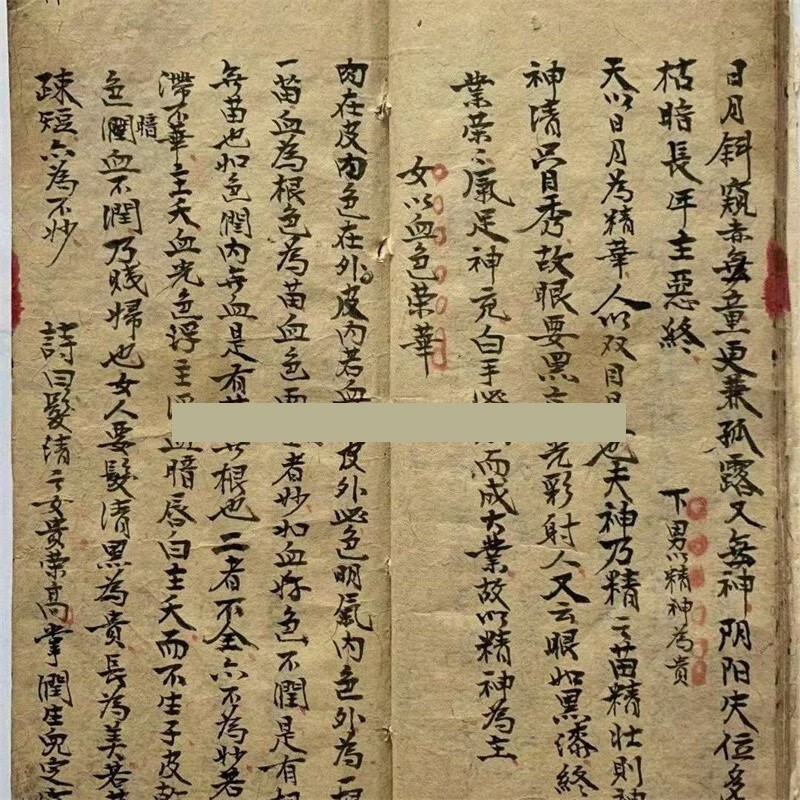 日月斜窺赤無童更兼孤露又無神阴阳失位多
枯暗長年主惡終
下男以精神為貴
天以日月為精華人以双目日也夫神乃精之苗精壯則神
神清則目秀故眼要黑光彩射人又云眼如黑漆終
業榮之氣足神充白手而成大業故以精神為主
女以血色荣華
肉在皮内色在外皮内若血皮外必色明氣内色外為一
一苗血為根色為苗血色両者妙如血好色不潤是有根
無苗也如色潤内無血是有苗無根也二者不全亦不為妙若
滯不華主夭血光色浮主血暗唇白主夭而不生子皮乾
色潤暗血不潤乃贱婦也女人要髮清黑為貴長為美若黄
疎短亦為不妙
詩曰髮清之女貴荣高掌潤生兒定